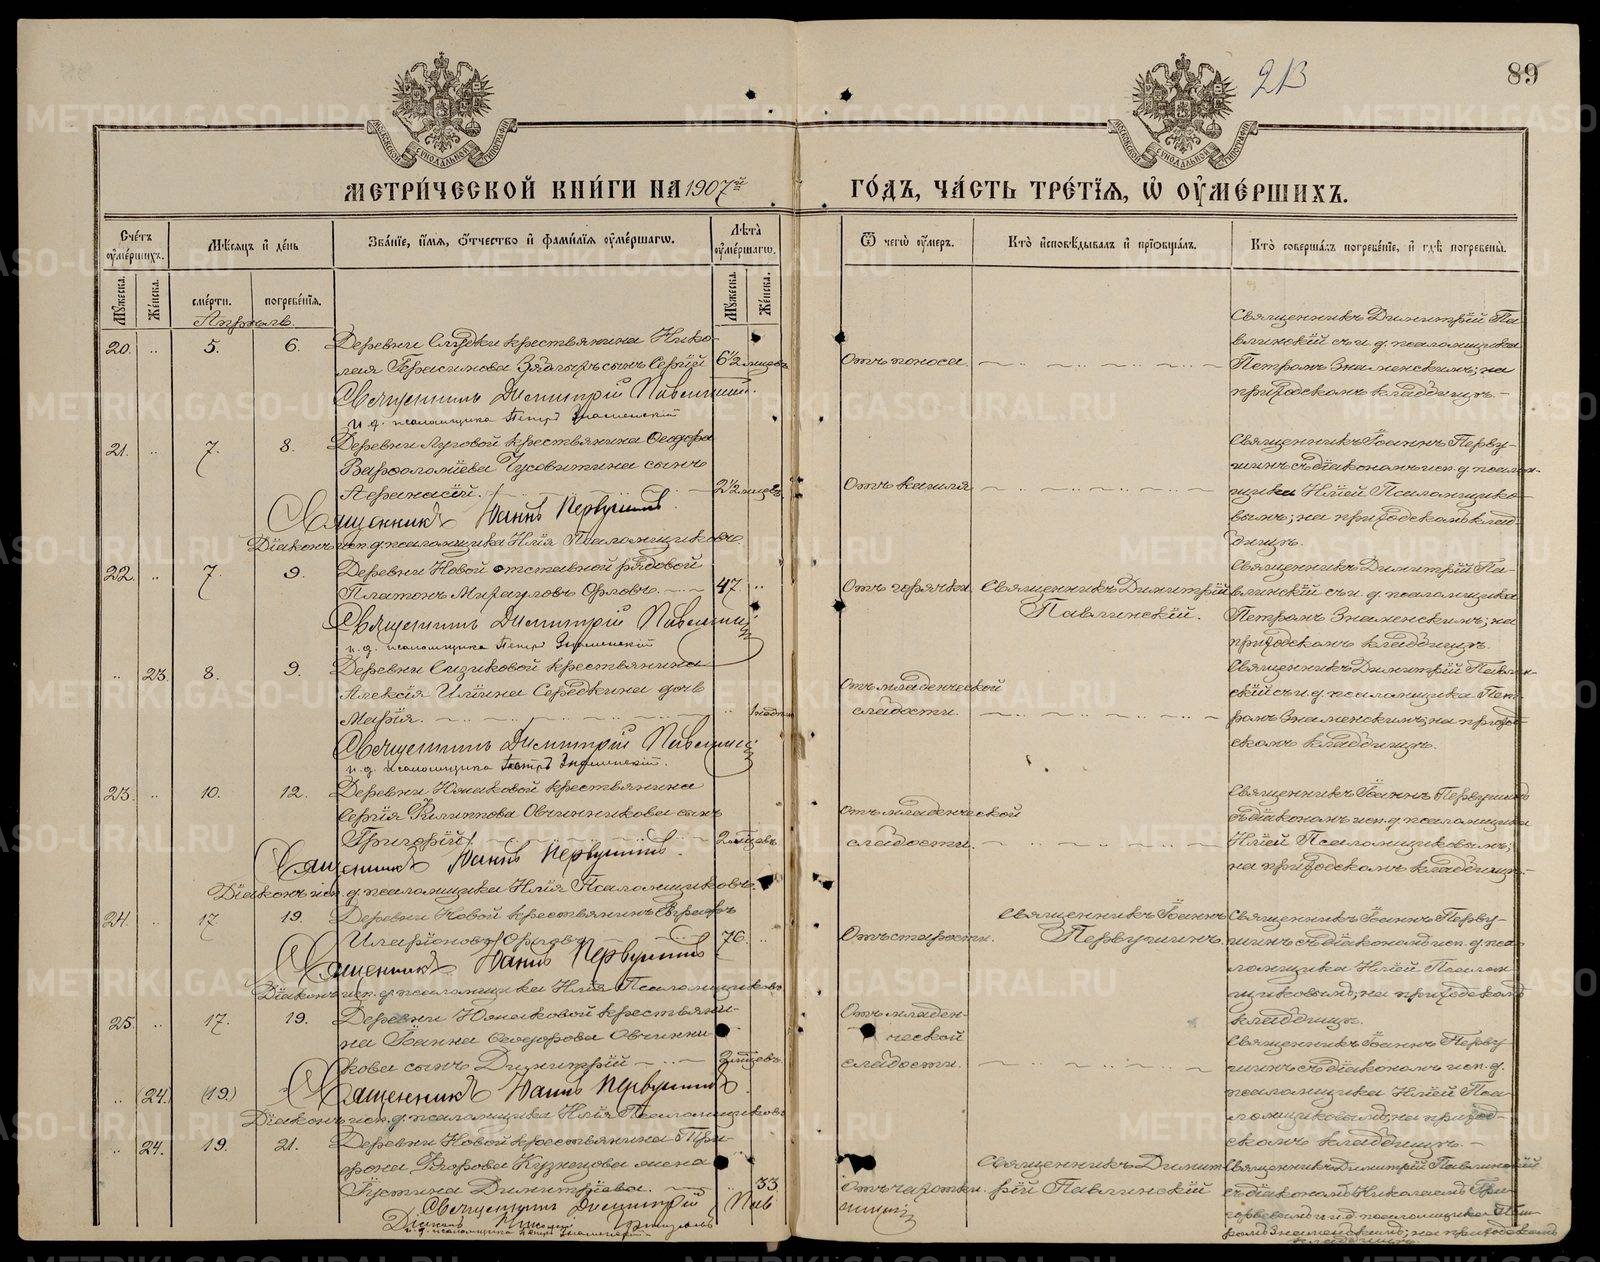 213
89
МЕТРИЧЕСКОЙ КНИГИ НА 1907й
ГОДЪ, ЧАСТЬ ТРЕТІЯ, Ѡ ОУМЕРШИХЪ.
МОСКОВСКОЙ СѴНОДАЛЬНОЙ ТИПОГРАФІИ
МОСКОВСКОЙ СѴНОДАЛЬНОЙ ТИПОГРАФІИ
Счетъ оумершихъ.
Мѣсяцъ и день
Званіе, имя, отчество и фамилія оумершагѡ.
Лѣта оумершагѡ.
Ѿ чегѡ оумеръ.
Кто исповѣдывалъ и пріѡбщалъ.
Кто совершалъ погребеніе, и гдѣ погребены.
Мужеска.
Женска.
смерти.
погребенія.
Мужеска.
Женска.
Апрѣль.
20. „ 5. 6.
Деревни Слудки крестьянина Нико-
лая Герасимова сынъ Сергій
6½ мцевъ
Священникъ Димитрій Павлинскій.
и. д. псаломщика Петръ Знаменскій
Отъ поноса
Священникъ Димитрій Па-
влинскій съ и. д. псаломщика
Петромъ Знаменскимъ; на
приходскомъ кладбищѣ.
21. „ 7. 8.
Деревни Луговой крестьянина Ѳеодора
Варѳоломѣева Чусовитина сынъ
Аѳанасій.
2½ мцевъ
Священникъ Іоаннъ Первушинъ.
Діаконъ исп. д. псаломщика Илія Псаломщиковъ.
Отъ кашля
Священникъ Іоаннъ Перву-
шинъ съ діакономъ исп. д. псалом-
щика Иліей Псаломщико-
вымъ; на приходскомъ клад-
бищѣ.
22. „ 7. 9.
Деревни Новой отставной рядовой
Платонъ Михаиловъ Орловъ.
47. „
Священникъ Димитрій Павлинскій
и. д. псаломщика Петръ Знаменскій
Отъ горячки
Священникъ Димитрій
Павлинскій.
Священникъ Димитрій Па-
влинскій съ и. д. псаломщика
Петромъ Знаменскимъ; на
приходскомъ кладбищѣ.
„ 23. 8. 9.
Деревни Сизиковой крестьянина
Алексія Иліина Середкина дочь
Марія.
Священникъ Димитрій Павлинскій
и. д. псаломщика Петръ Знаменскій.
Отъ младенческой
слабости.
Священникъ Димитрій Павлин-
скій съ и. д. псаломщика Пет-
ромъ Знаменскимъ; на приход-
скомъ кладбищѣ.
23. „ 10. 12.
Деревни Южаковой крестьянина
Сергія Филиппова Овчинникова сынъ
Григорій.
2 мцевъ
Священникъ Іоаннъ Первушинъ.
Діаконъ исп. д. псаломщика Илія Псаломщиковъ.
Отъ младенческой
слабости.
Священникъ Іоаннъ Первушинъ
съ діакономъ исп. д. псаломщика
Иліей Псаломщиковымъ;
на приходскомъ кладбищѣ.
24. „ 17. 19.
Деревни Новой крестьянинъ
Иларіоновъ Орловъ
76. „
Священникъ Іоаннъ Первушинъ
Діаконъ исп. д. псаломщика Илія Псаломщиковъ
Отъ старости.
Священникъ Іоаннъ
Первушинъ.
Священникъ Іоаннъ Перву-
шинъ съ діакономъ исп. д. пса-
ломщика Иліей Псалом-
щиковымъ; на приходскомъ
кладбищѣ.
25. „ 17. 19.
Деревни Южаковой крестьяни-
на Іоанна Ѳеодорова Овчинни-
кова сынъ Димитрій
мцевъ
„ (24.) (19.)
Священникъ Іоаннъ Первушинъ.
Діаконъ исп. д. псаломщика Илія Псаломщиковъ
Отъ младен-
ческой
слабости.
Священникъ Іоаннъ Перву-
шинъ съ діакономъ исп. д.
псаломщика Иліей Пса-
ломщиковымъ; на приход-
скомъ кладбищѣ.
„ 24. 19. 21.
Деревни Новой крестьянина Три-
фона Егорова Кузнецова жена
Іустина Димитріева.
„ 33
Священникъ Димитрій Пав
линскій
Діаконъ Николай
и. д. псаломщика Петръ Знаменскій.
Отъ чахотки.
Священникъ Димит-
рій Павлинскій
Священникъ Димитрій Павлинскій
съ діакономъ Николаемъ Гри-
горьевымъ и и. д. псаломщика Пет-
ромъ Знаменскимъ; на приходскомъ
кладбищѣ.
METRIKI.GASO-URAL.RU